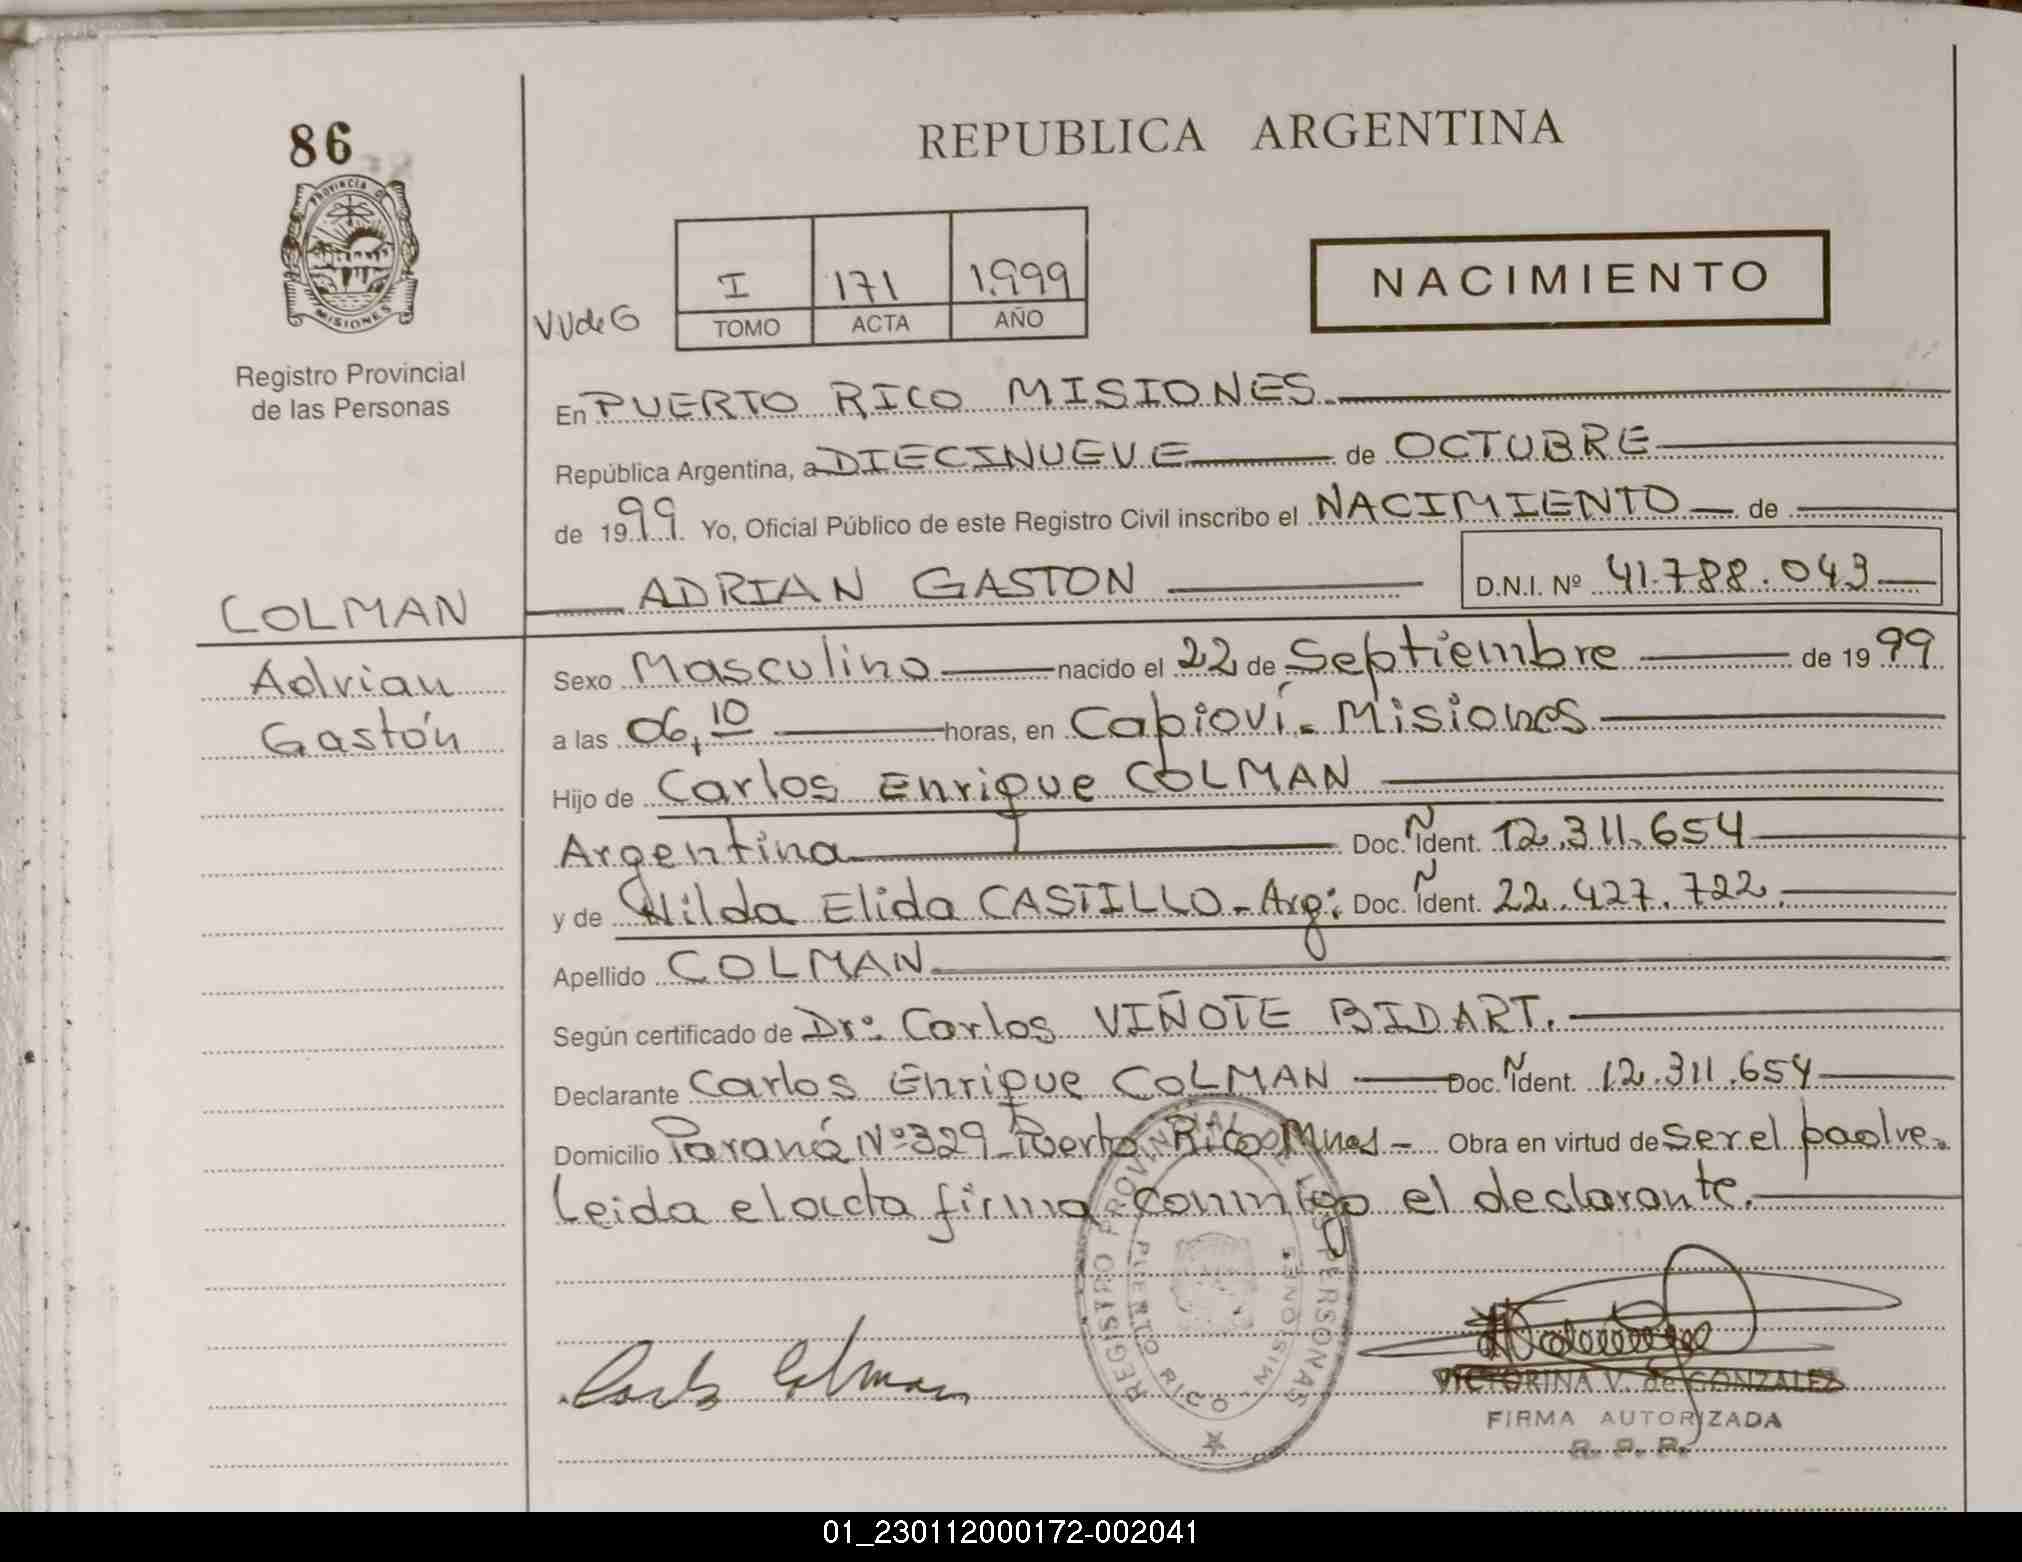 86
PROVINCIA DE
MISIONES
Registro Provincial
de las Personas
REPUBLICA ARGENTINA
VVdeG
I 171 1.999
TOMO ACTA AÑO
NACIMIENTO
En PUERTO RICO MISIONES.
República Argentina, a DIECINUEVE de OCTUBRE
de 1999 Yo, Oficial Público de este Registro Civil inscribo el NACIMIENTO de
ADRIAN GASTON D.N.I. Nº 41.788.043
COLMAN
Adrian
Gastón
Sexo Masculino nacido el 22 de Septiembre de 1999
a las 06,10 horas, en Capioví - Misiones
Hijo de Carlos Enrique COLMAN
Argentina Doc. Ñ Ident. 12.311.654
y de Nilda Elida CASTILLO - Arg: Doc. Ñ Ident. 22.427.722.
Apellido COLMAN
Según certificado de Dr: Carlos VIÑOTE BIDART.
Declarante Carlos Enrique COLMAN Doc. Ñ Ident. 12.311.654
Domicilio Paraná Nº 329 - Puerto Rico Mnes - Obra en virtud de ser el padre.
Leida el acta firma conmigo el declarante.
REGISTRO PROVINCIAL DE LAS PERSONAS
PUERTO RICO - MISIONES
Carlos Colman
VICTORINA V. de GONZALEZ
FIRMA AUTORIZADA
R. P. P.
01_230112000172-002041